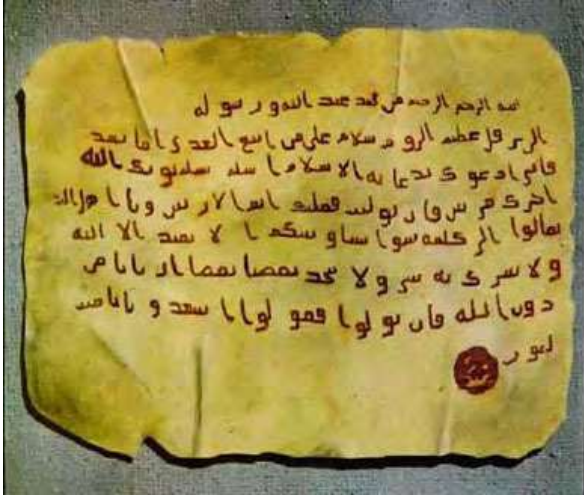 بسم الله الرحمن الرحيم من محمد عبد الله ورسوله
الى هرقل عظيم الروم سلام على من اتبع الهدى اما بعد
فانى ادعوك بدعايه الاسلام اسلم تسلم يوتك الله
اجرك مرتين فان توليت فعليك اثم الاريسين ويا اهل الكتاب
تعالوا الى كلمه سوا بيننا وبينكم الا نعبد الا الله
ولا نشرك به شيا ولا يتخذ بعضنا بعضا اربابا من
دون الله فان تولوا فقولوا اشهدوا بانا مسلمون